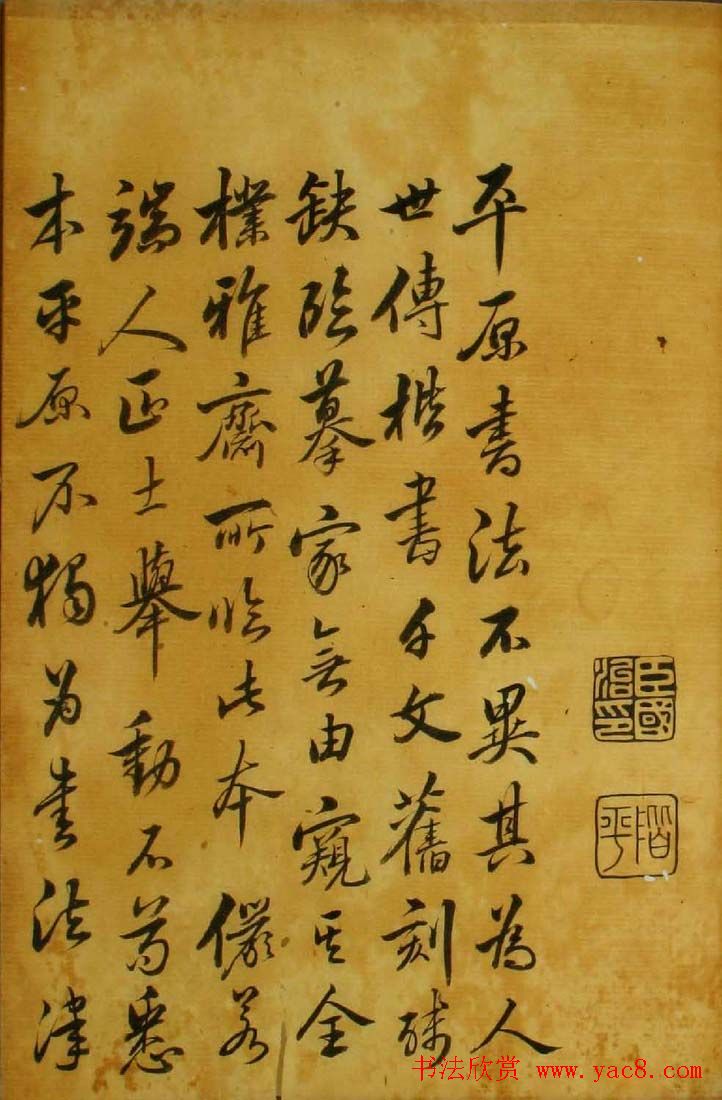 平原書法不異其為人
世傳楷書千文舊刻殘
缺臨摹家無由窺其全
樸雅齋所臨此本儼若
端人正士舉動不苟悉
本平原不獨為書法津
臣國治印
階平
书法欣赏 www.yac8.com